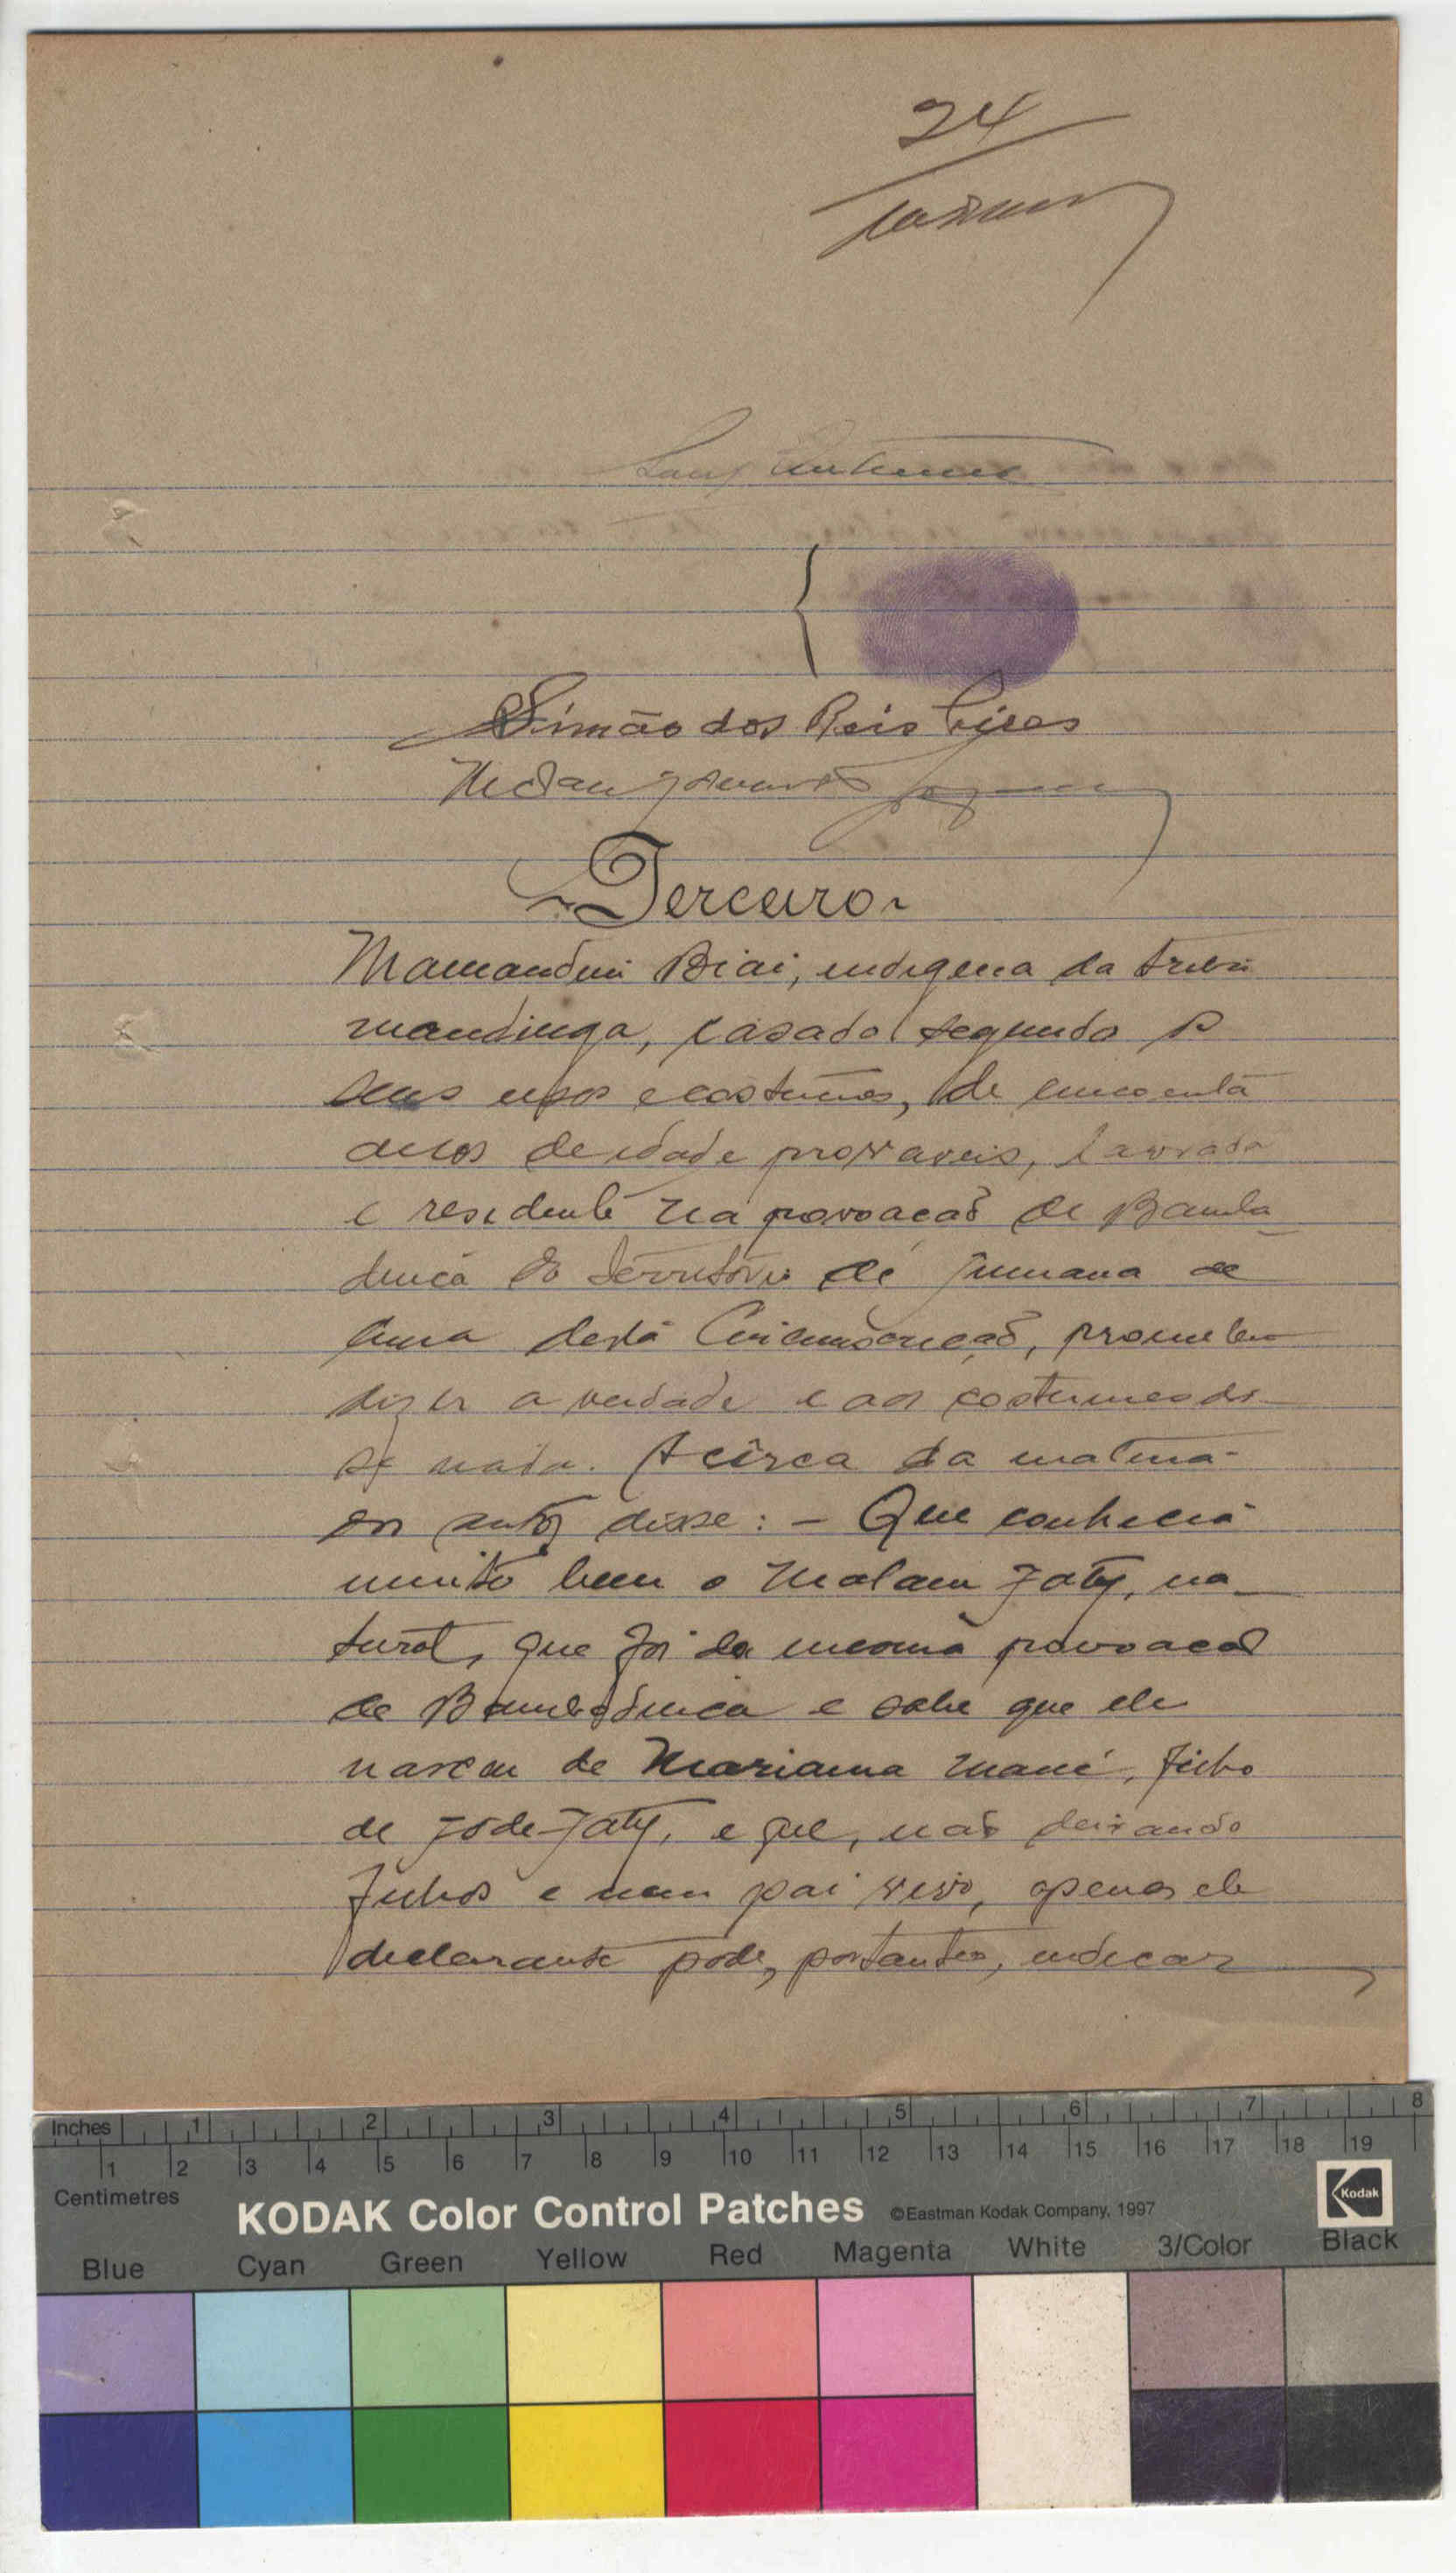 24
Simão dos Reis Pires
Terceiro
Mamandim Biai, indigena da tribu
mandinga, casado segundo o
seus usos e costumes, de cincoenta
anos de idade provaveis, lavrada
e residente na povoacaõ de Bamba
dinca do territorio de
desta Circunscriçaõ, prometeu
dizer a verdade e aos costumes dis-
se nada. Acêrca da materia
dos autos disse: - Que conhecia
muito bem o Malam Jaty, na_
tural, que foi da mesma povoacaõ
de Bambadinca e sabe que ele
nasceu de Mariama Mané, filho
de Jode Jaty, e que, naõ deixando
filhos e nem pai vivo, apenas ele
declarante pode, portanto, indicar
Inches 1 2 3 4 5 6 7 8
1 2 3 4 5 6 7 8 9 10 11 12 13 14 15 16 17 18 19
Centimetres
KODAK Color Control Patches ©Eastman Kodak Company, 1997
Kodak
Blue Cyan Green Yellow Red Magenta White 3/Color Black